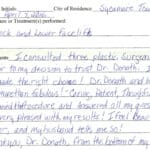 City of Residence: Sycamore
April 7, 2006
or Treatment(s) performed:
Neck and Lower Facelift
I consulted three plastic Surgeons
to my decision to trust Dr. Donath. I
made the right choice! Dr. Donath and h
are fabulous! Caring, Patient, Thought
procedure and answered all my ques
very pleased with my results! I feel
and my husband tells me so!
you, Dr. Donath, from the bottom of my